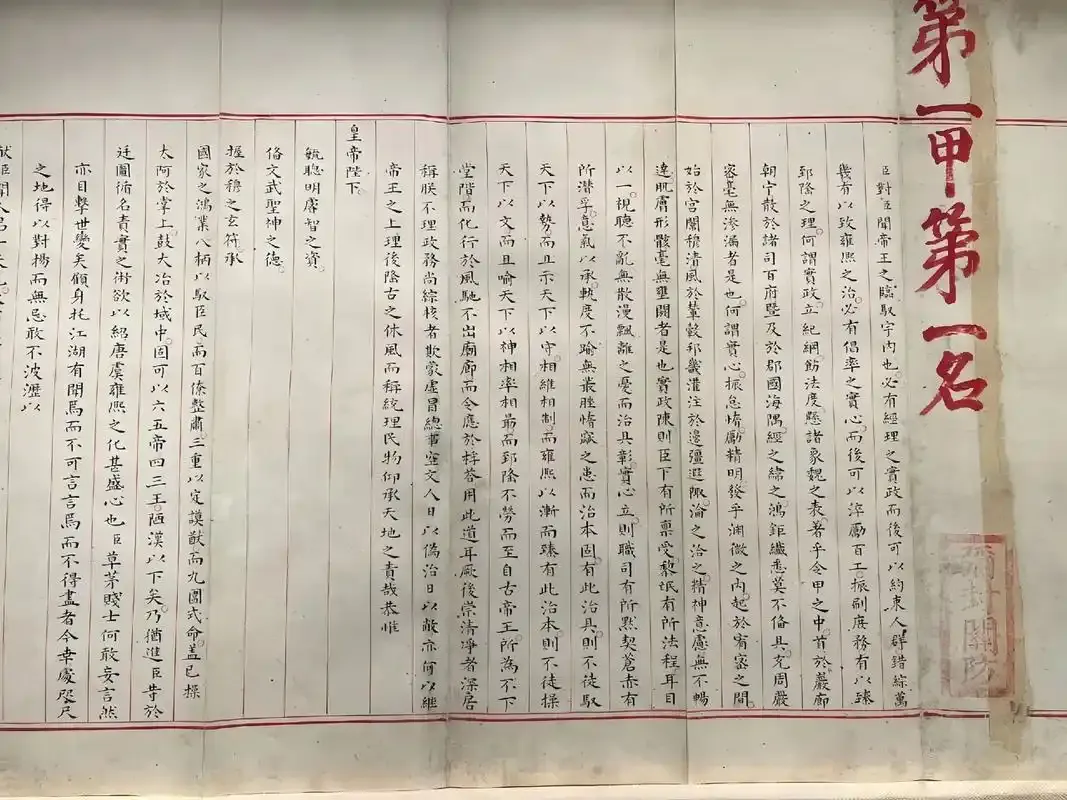 第一甲第一名
彌封關防
臣對臣聞帝王之臨馭宇內也必有經理之實政而後可以約束人群錯綜萬
幾有以致雍熙之治必有倡率之實心而後可以淬勵百工振刷庶務有以臻
郅隆之理何謂實政立紀綱飭法度懸諸象魏之表著乎令甲之中首於巖廊
朝宁散於諸司百府暨及於郡國海隅經之緯之鴻鉅纖悉莫不備具充周嚴
密毫無滲漏者是也何謂實心振怠惰勵精明發乎淵微之內起於宥密之間
始於宮闈穆清風於輦轂邦畿灌注於邊疆遐陬淪之洽之精神意慮無不暢
達肌膚形骸毫無壅閼者是也實政陳則臣下有所稟受黎氓有所法程耳目
以一視聽不亂無散漫飄離之憂而治具彰實心立則職司有所默契蒼赤有
所潛孚意氣以承軌度不踰無叢脞惰窳之患而治本固有此治具則不徒馭
天下以勢而且示天下以守相維相制而雍熙以漸而臻有此治本則不徒操
天下以文而且喻天下以神相率相最而郅隆不勞而至自古帝王所為不下
堂階而化行於風馳不出廟廊而令應於桴答用此道耳厥後崇清凈者深居
稱朕不理政務尚綜核者欺蒙虛冒總事空文人日以偽治日以敝亦何以繼
帝王之上理後隆古之休風而稱統理民物仰承天地之責哉恭惟
皇帝陛下
毓聰明睿智之資
備文武聖神之德
握於穆之玄符承
國家之鴻業八柄以馭臣民而百僚整肅三重以定謨猷而九圍式命蓋已操
太阿於掌上鼓大冶於域中固可以六五帝四三王陋漢以下矣乃猶進臣等於
廷圖循名責實之術欲以紹唐虞雍熙之化甚盛心也臣草茅賤士何敢妄言然
亦目擊世變矣顧身托江湖有聞焉而不可言言焉而不得盡者今幸處咫尺
之地得以對揚而無忌敢不波瀝以
獻臣聞